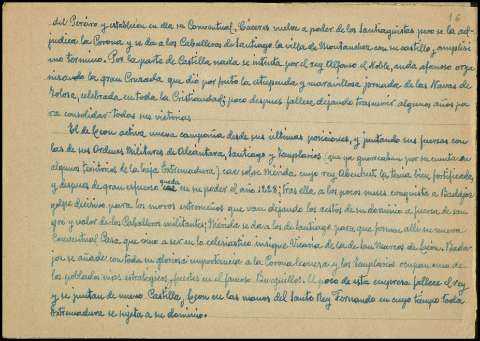 16
del Pereiro y establecen en ella su Conventual. Cáceres vuelve a poder de los Santiaguistas pero se la ad-
judica la Corona y se da a los Caballeros de Santiago la villa de Montánchez con su castillo, amplísi-
mo termino. Por la parte de Castilla, nada se intenta por el rey Alfonso el Noble, anda afanoso orga
nizando la gran Cruzada que dió por fruto la estupenda y maravillosa jornada de las Navas de
Tolosa, celebrada en toda la Cristiandad; poco despues fallece dejando trascurrir algunos años pa
ra consolidar todas sus victorias
El de Leon activa nueva campaña desde sus últimas posiciones, y juntando sus fuerzas con
las de sus Ordenes Militares de Alcántara, Santiago y Templarios (que ya guerreaban por su cuenta en
algunos territorios de la baja Extremadura) cae sobre Mérida cuyo rey la tenia bien fortificada,
y despues de gran esfuerzo queda en su poder el año 1228; tras ella, a los pocos meses conquista a Badajoz
golpe decisivo para los moros extremeños que van dejando los restos de su dominio a fuerza de san
gre y valor de los Caballeros militantes; Mérida se da a los de Santiago para que formen alli su nueva
Conventual Casa, que vino a ser en lo eclesiastico insigne Vicaria de la de San Marcos de León. Badar
joz se añade con toda su gloriosa importancia a la Corona leonesa y los Templarios ocupan uno de
los poblados mas estratégicos y fuertes en el famoso Burguillos. A poco de esta empresa fallece el rey
y se juntan de nuevo Castilla y Leon en las manos del Santo Rey Fernando en cuyo tiempo toda
Extremadura se sujeta a su dominio.